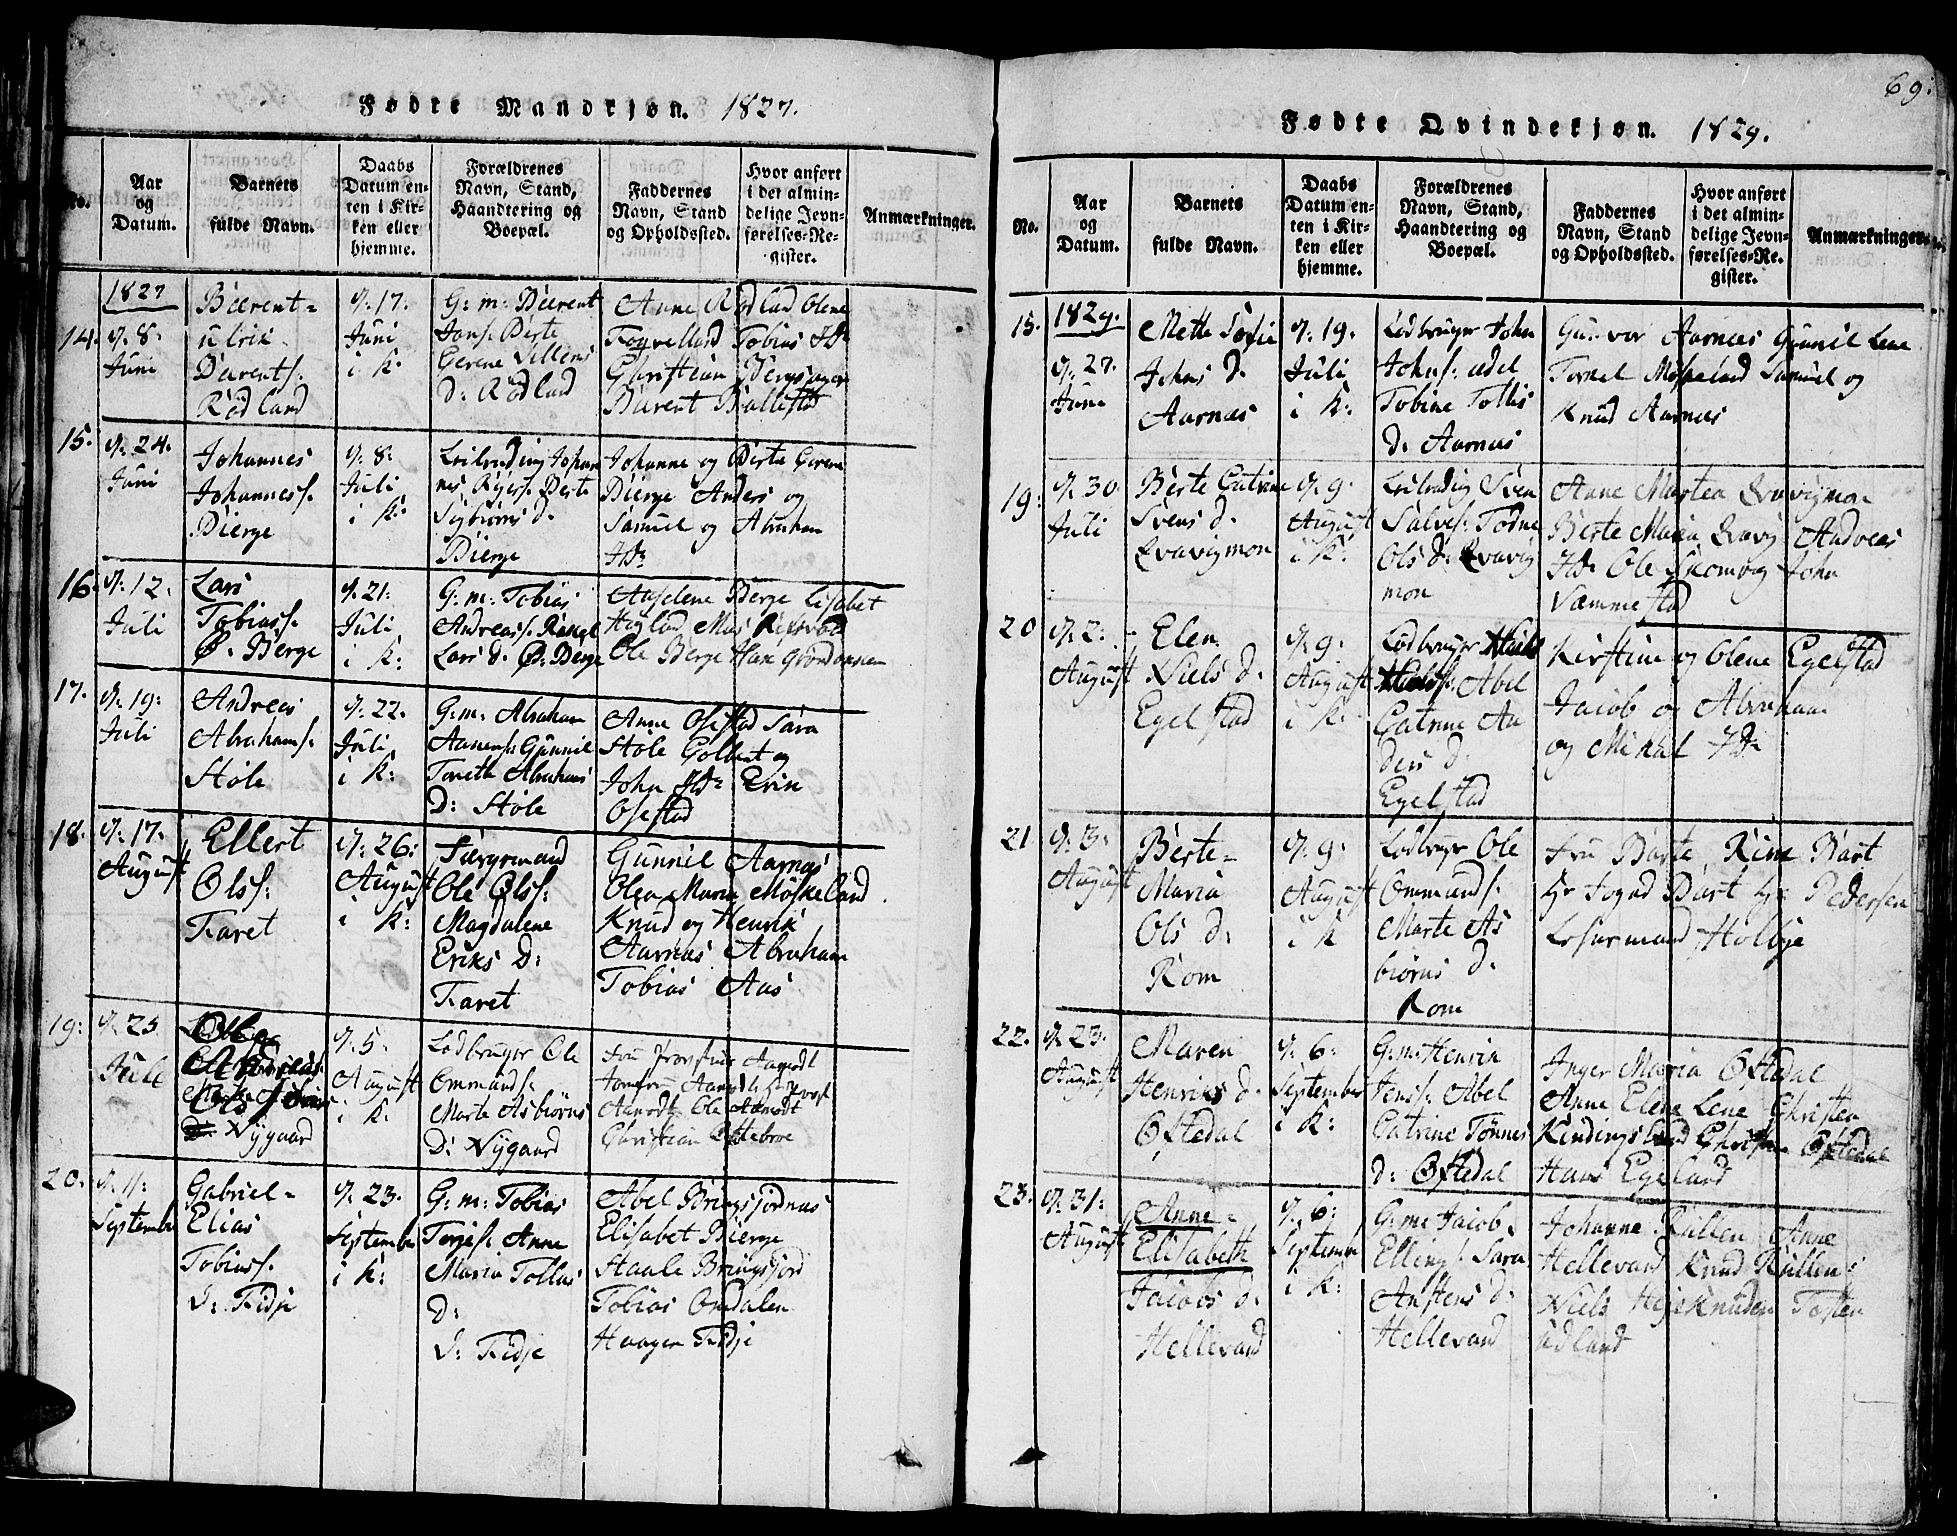 Fødte Mandkjøn. 1827.
No.
Aar
og
Datum.
Barnets
fulde Navn.
Daabs
Datum en-
ten i Kir-
ken eller
hjemme.
Forældrenes
Navn, Stand,
Haandtering og
Boepæl.
Faddernes
Navn, Stand
og Opholdssted.
Hvor anført
i det almin-
delige Jevn-
førelses-Re-
gister.
Anmærkninger.
14.
1827
8:
Juni
Bærent-
Ulrik
Bærents.
Rødland
17.
Juni
i K:
G: m: Bærent
Jans. Berte
Gerene Villems
d: Rødland
Anne Rødland Olene
Tobias Ib:
Christian
Bærent Ballestad
15.
24.
Juni
Johannes
Johanness.
Bierge
8:
Juli
i K:
Johan
nes Berte
d.
Bierge
Johanne og Berte Gerene
Bierge Anders og
Samuel og Abraham
Ib:
16.
12.
Juli
Lars
Tobiass.
Ø. Berge
21:
Juli
i K:
G: m: Tobias
Andreass. Rakel
Lars d. Ø. Berge
Aaselene Berge Lisabet
Høgland
Ole Berge
17.
19:
Juli
Andreas
Abrahams.
Støle
22.
Juli
i K:
G: m: Abraham
Aanens. Gunnil
Toreth Abrahams
D: Støle
Anne Osestad Sara
Støle Golbert og
John Ib: Erik
Osestad
18.
17.
August
Ellert
Olss:
Faret
26:
August
i K:
Ole Olss:
Magdalene
Eriks D:
Faret
Gunnil Aarnæs
Olea Marie Møskeland
Knud og Henrik
Aarnæs Abraham
Tobias Aas
19:
25
Juli
Ols
Nygaard
5.
August
i K:
Ladbruger Ole
Ommunds.
Marte Asbiørns
D: Nygaard
Aamodt
Aamodt Ole Aamodt
Christian
20.
11:
September
Gabriel-
Elias
Tobiass.
I: Fidje
23.
September
i K:
G: m: Tobias
Terjes. Anne
Maria Tollas
D:
I: Fidje
Abel Bringsjordnæs
Elisabet Bierge
Staale Bringsjord
Tobias Omdalen
Haagen Fidje
69.
Fødte Qvindekjøn. 1829.
No.
Aar
og
Datum.
Barnets
fulde Navn.
Daabs
Datum en-
ten i Kir-
ken eller
hjemme.
Forældrenes
Navn, Stand,
Haandtering og
Boepæl.
Faddernes
Navn, Stand
og Opholdssted.
Hvor anført
i det almin-
delige Jevn-
førelses-Re-
gister.
Anmærkninger.
15.
1829.
27.
Juni
Mette Sofie
Johns d.
Aarnæs
19.
Juli
i K:
Ladbruger John
Johns: Adel
Tobine Tollis
d. Aarnæs
Gunvor Aarnæs Gunnil Lene
Torkel Møskeland Samuel og
Knud Aarnæs
19:
30
Juli
Berte Catrine
Svens d.
Qvavigmon
9.
August
i K:
Sven
Salves. Todne
Ols d. Qvavig
mon
Anne Martea Qvavigmon
Berte Maria Qvavig Andreas
Ib: Ole John
Vammestad
20
2:
August
Elen
Niels d.
Egelstad
9:
August
i K:
Ladbruger
Abel
Catrine An
ders d.
Egelstad
Kirstine og Olene Egelstad
Jacob og Abraham
og Mikal Ib:
21
3:
August
Berte-
Maria
Ols d:
Rom
9:
August
i K
Ladbruger Ole
Ommunds.
Marte As
biørns d.
Rom
Fru Barte, Rine Bart
Hr Foged Bart Hr: Pedersen
Holbye
22.
23.
August
Maren
Henriks d.
Oftedal
6:
September
i K:
G: m: Henrik
Jens. Abel
Catrine Tønnes
d: Oftedal
Inger Maria Oftedal
Anne Elene Lene Christen
Kindingsland Oftedal
Hans Egeland
23.
31:
August
Anne-
Elisabeth
Jacobs d.
Hellevand
6:
September
i K:
G: m: Jacob
Ellings. Sara
Anstens d.
Hellevand
Johanne Rullen Anne
Hellevand Knud Rullen
Niels Tosten
Udland